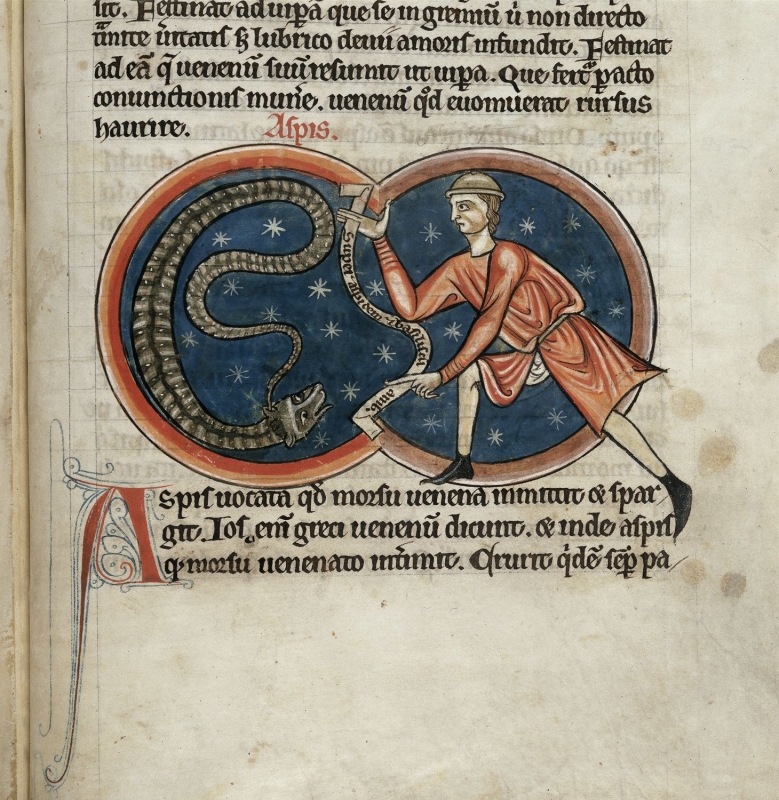 sit. Festinat ad uip̄a que se in gremiū ū non directo
tͣmite ūitatis ſꝫ lubrico deuii amoris infundit. Festinat
ad eā q̄ uenenū suū resumit ut uip̄a. Que fert̃ pͣacto
coniunctionis mun̄e. uenenū qd̓ euomuerat rursus
haurire. Aspis.
Super aspidem & basiliscū
amb.
Aspis uocata qd̓ morsu uenena inmittit & spar
git. Ios. eni̅ greci uenenū dicunt. & inde aspis
q̓ morsu uenenato int̓imit. Currit q̓dē semp̱ pa